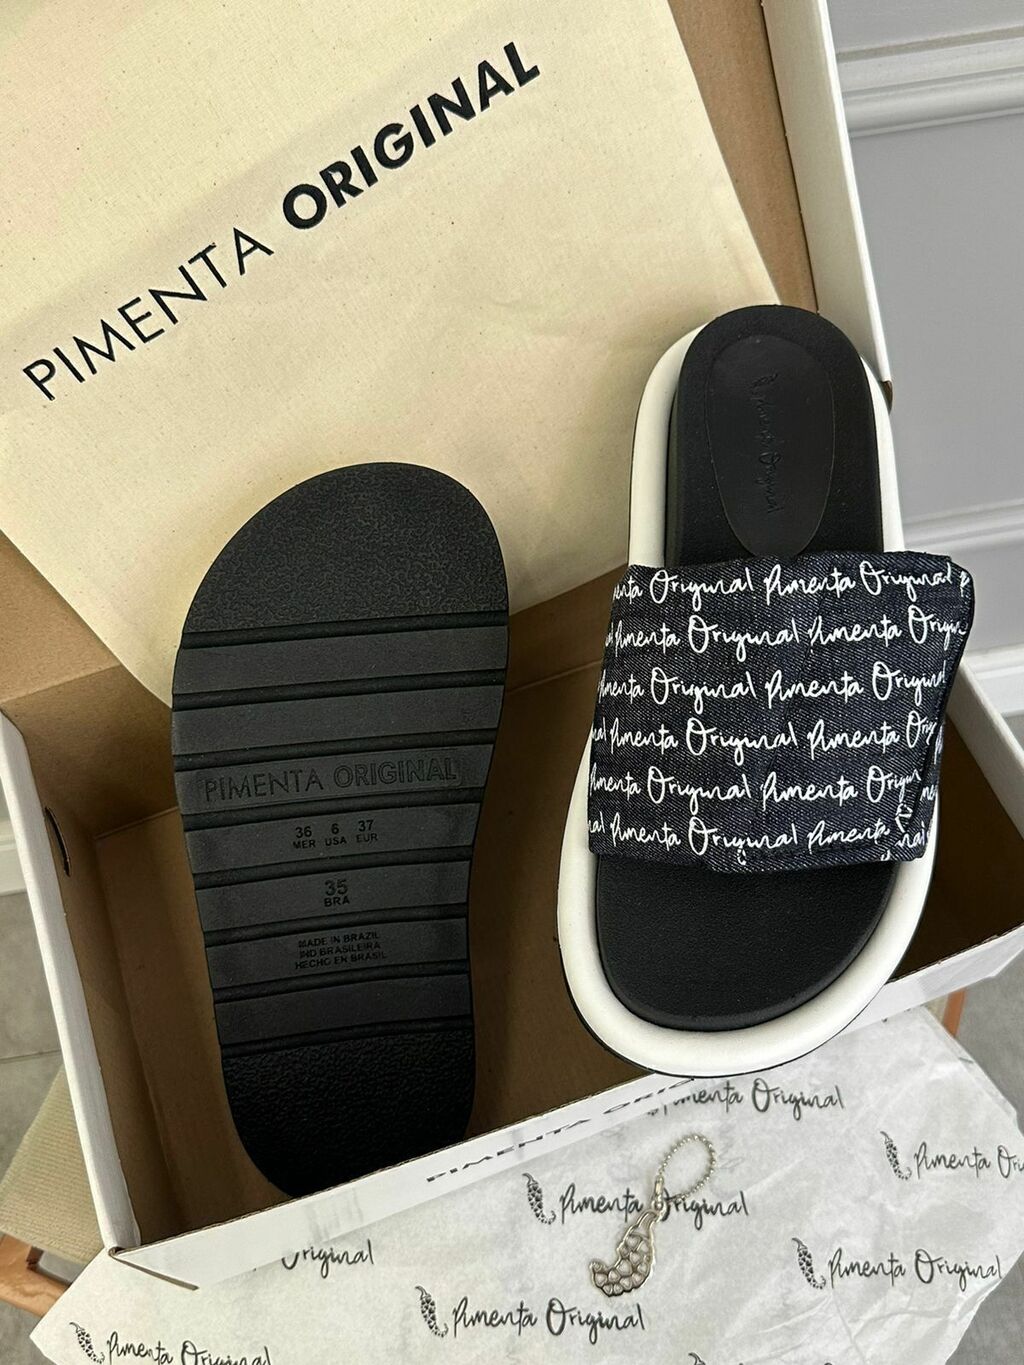 PIMENTA ORIGINAL
Pimenta Original
Original Pimenta Original
Pimenta Original Pimenta
Pimenta Original Pimenta
Pimenta Original Pimenta
Pimenta Original Pimenta
Pimenta Original Pimenta
PIMENTA ORIGINAL
36 6 37
MER USA EUR
35
BRA
MADE IN BRAZIL
IND BRASILEIRA
HECHO EN BRASIL
PIMENTA
Pimenta Original
Pimenta
Pimenta Original
Original
Pimenta Original
Pimenta Original
Pimenta Original